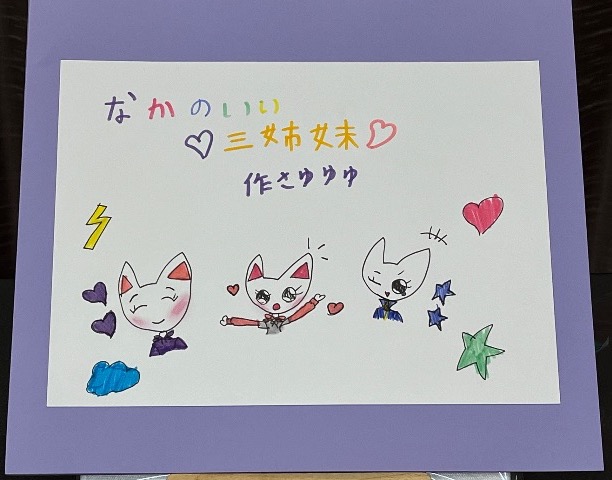 なかのいい
♡三姉妹♡
作さゆゆゆ